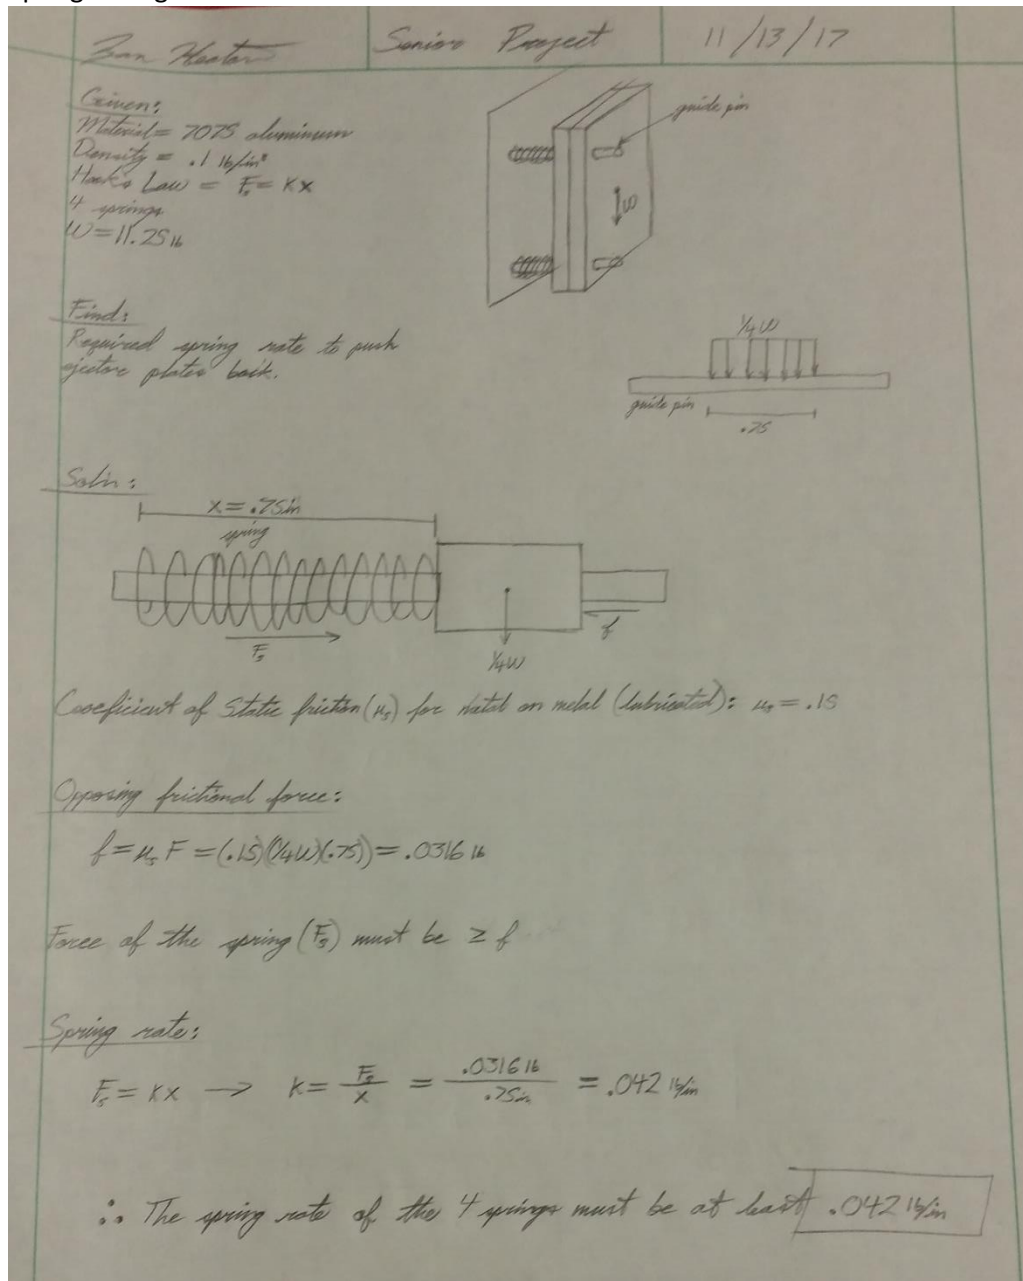 Senior Project
11/13/17
Given:
Material = 7075 aluminum
Density = .1 lb/in³
Hook's Law = Fs = Kx
4 springs
W = 11.25 lb
guide pin
W
Find:
Required spring rate to push
ejector plates back.
1/4 W
guide pin
.75
Soln:
x = .75in
spring
Fs
1/4 W
f
Coeficient of Static friction (μs) for metal on metal (lubricated): μs = .15
Opposing frictional force:
f = μs F = (.15)(1/4W)(.75)) = .0316 lb
Force of the spring (Fs) must be ≥ f
Spring rate:
Fs = Kx → K = Fs/x = .0316 lb/.75in = .042 lb/in
∴ The spring rate of the 4 springs must be at least .042 lb/in